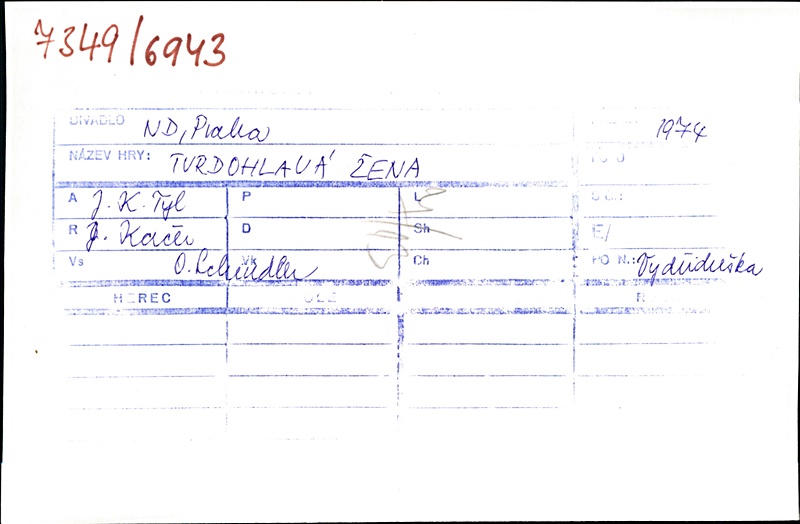 7349/6943
DIVADLO ND, Praha 1974
NÁZEV HRY: TVRDOHLAVÁ ŽENA
A J. K. Tyl P L
R J. Kačer D Sh E/
Vs O. Schindler Vk Ch PO N.: Vydřiduška
HEREC